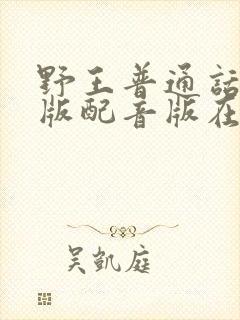 野王普通话
版配音版在
吴凯庭